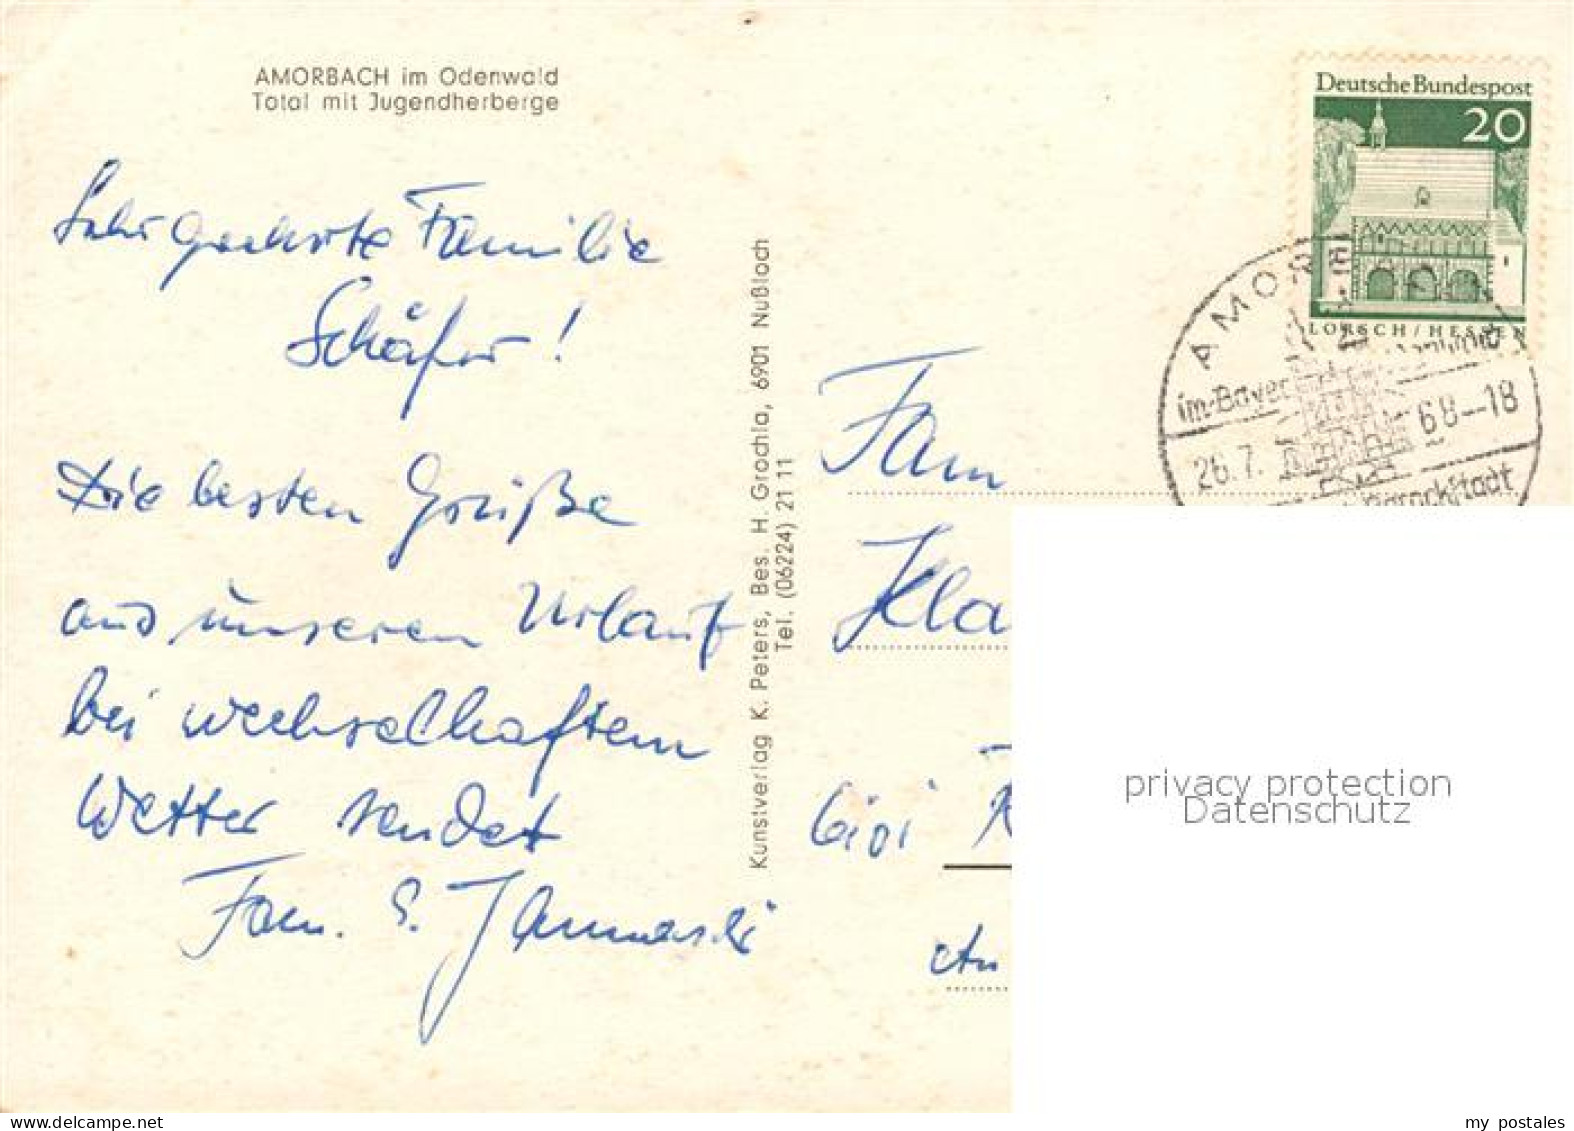 AMORBACH im Odenwald
Total mit Jugendherberge
Sehr geehrte Familie
Schäfer!
Die besten Grüße
aus unseren Urlaub
bei wechselhaftem
Wetter sendet
Fam.
Kunstverlag K. Peters, Bes. H. Grochla, 6901 Nußloch
Tel. (06224) 21 11
Deutsche Bundespost
20
LORSCH/HESSEN
AMOR
im Bayer
26.7. 68-18
Barockstadt
Fam
Kla
An
privacy protection
Datenschutz
my postales